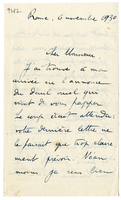 Rome, 6 novembre 1930
Cher Monsieur
J'ai trouvé à mon
arrivée ici l'annonce
du deuil cruel qui
vient de vous frapper.
Le coup était attendu:
votre dernière lettre ne
le faisait que trop claire
ment prévoir. Néan
moins je sens bien